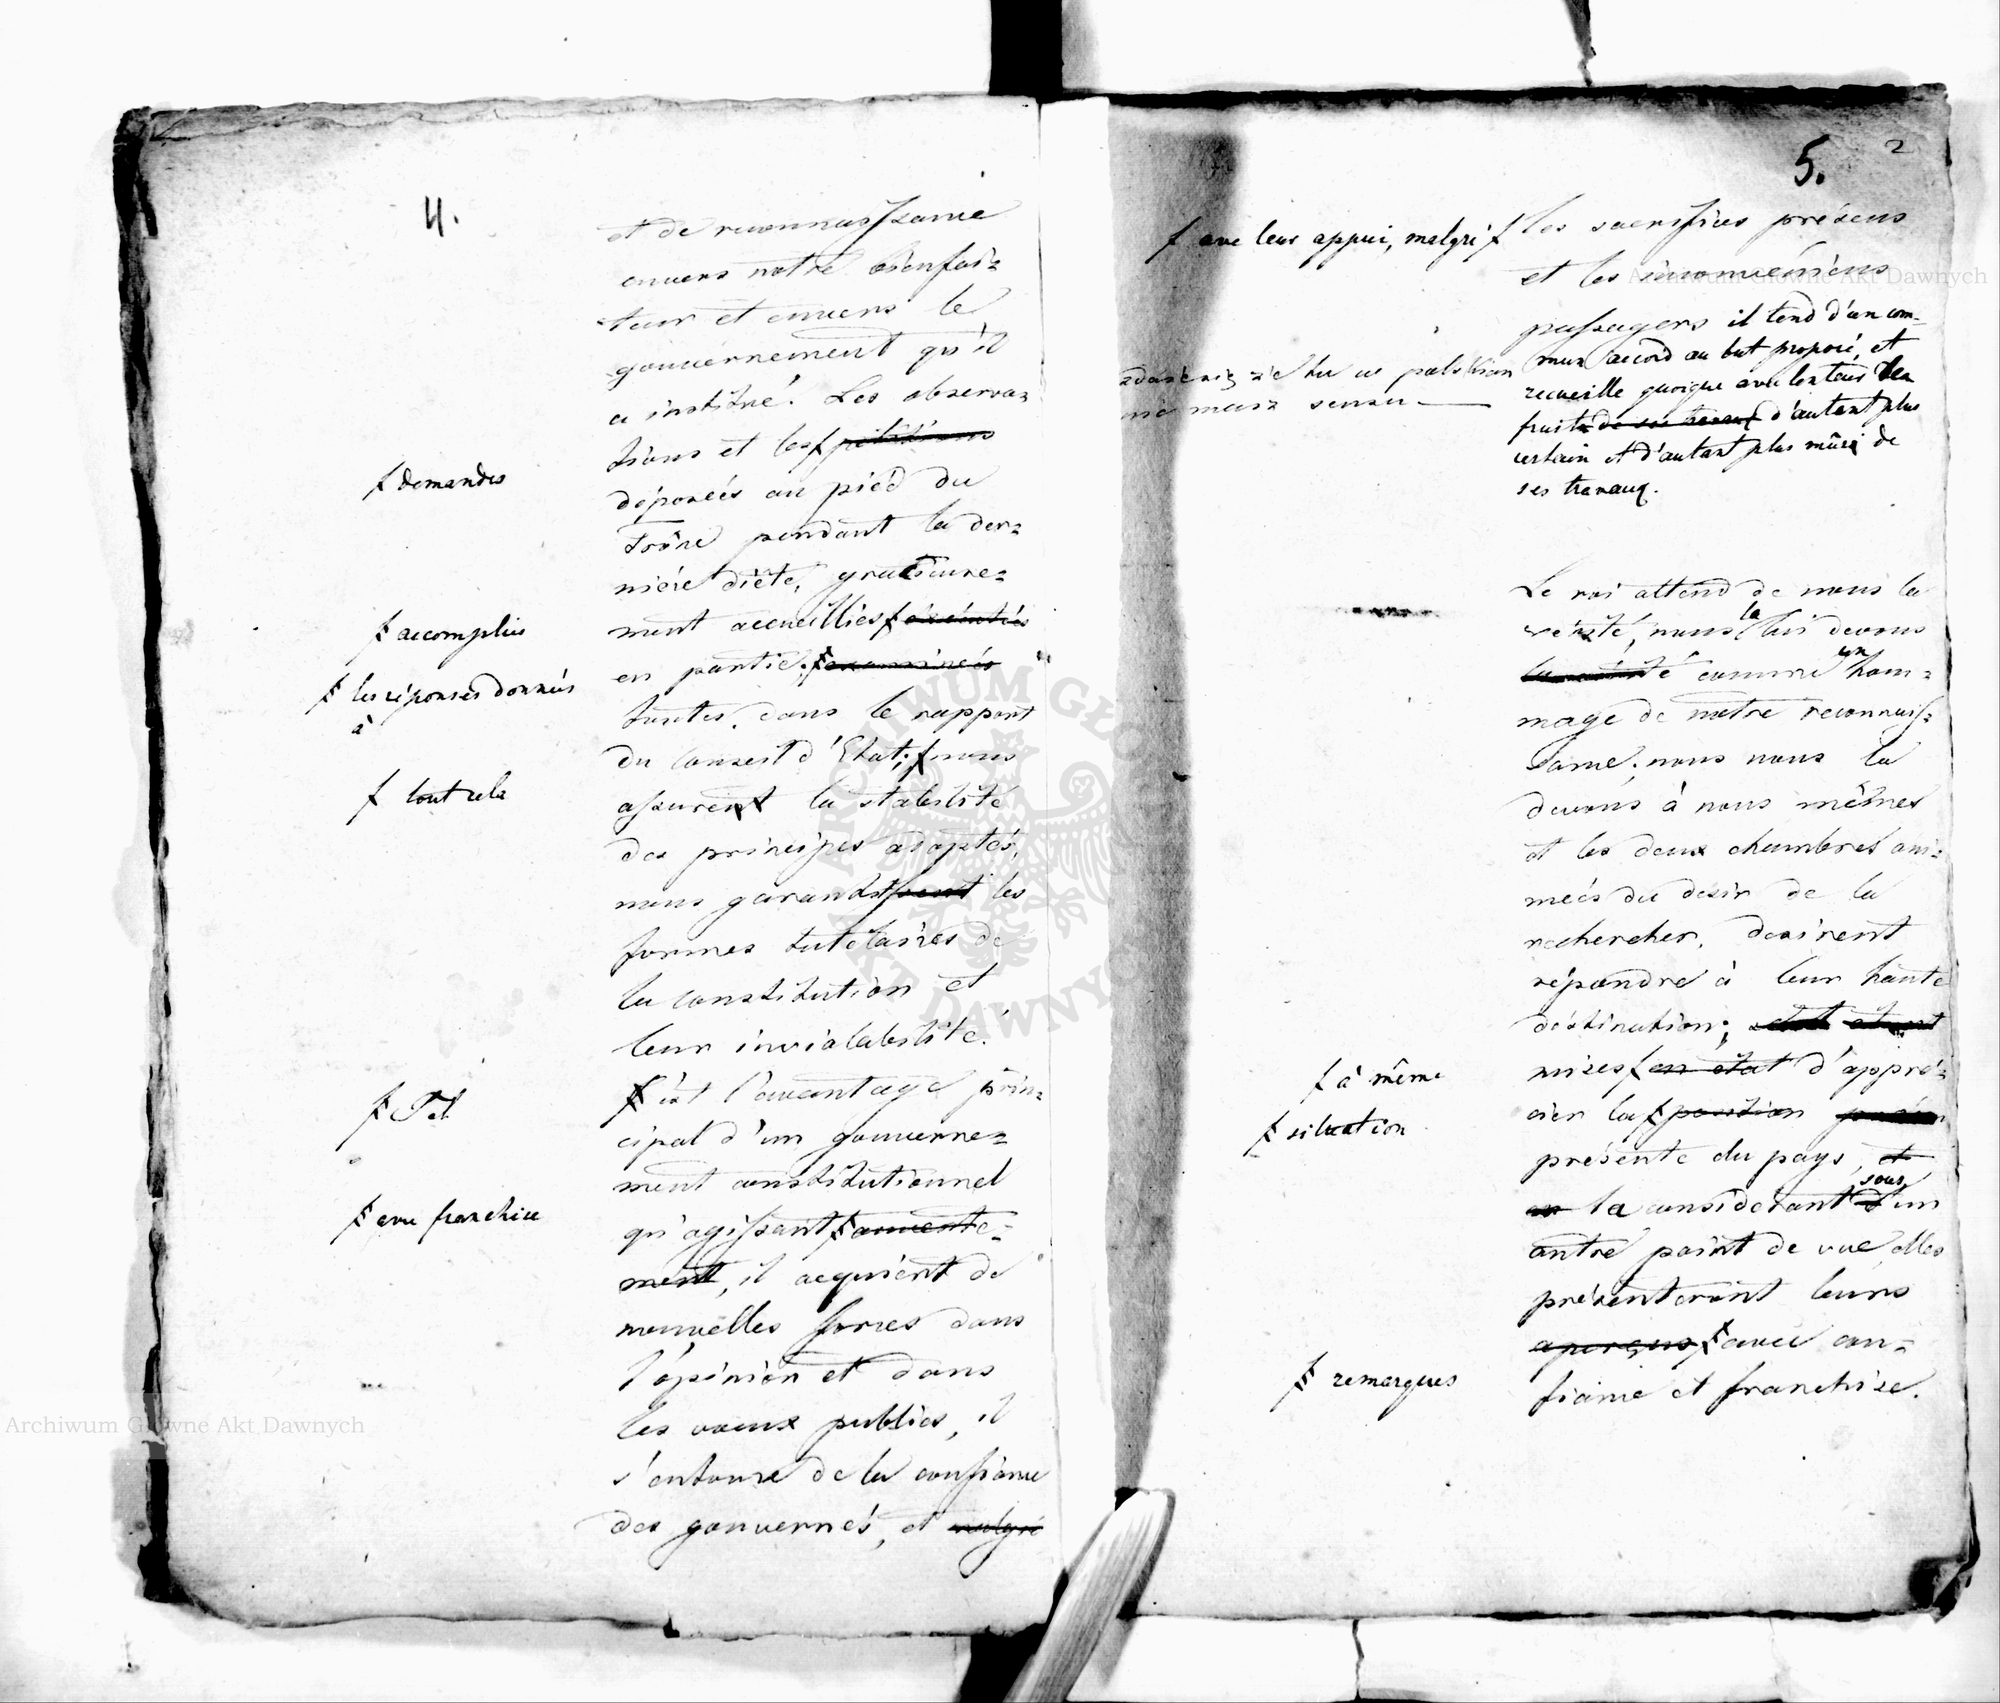 4.
et de reconnaissance
envers notre bienfai=
teur et envers le
gouvernement qu'il
a institué. Les observa=
tions et les ƒ petitions
ƒ demandes
déposées au pied du
Trône pendant la der=
nière diète, gracieuse=
ment accueillies ƒ exécutées
ƒ accomplies
en partie, ƒ examinées
ƒ les réponses données
à
toutes, dans le rapport
du conseil d'Etat; ƒ nous
ƒ tout cela
assurent la stabilité
des principes adoptés,
nous garantissent les
formes tutélaires de
la constitution et
leur inviolabilité.
ƒ C'est l'avantage prin=
ƒ Tel
cipal d'un gouverne=
ment constitutionnel
qu'agissant ƒ ouverte=
ƒ avec franchise
ment, il acquient de
nouvelles forces dans
l'opinion et dans
les voeux publics, il
s'entoure de la confiance
des gouvernés, et malgré
5. 2
ƒ avec leur appui, malgré ƒ les sacrifices présens
et les inconvéniens
passagers il tend d'un com-
mun accord au but proposé, et
recueille quoique avec lenteur les
fruits de ses travaux d'autant plus
certain et d'autant plus mûrs de
ses travaux.
Le roi attend de nous la
vérité, nous la lui devons
la vérité comme un hom=
mage de notre reconnais=
sance; nous nous la
devons à nous mêmes
et les deux chambres ani=
mées du desir de la
rechercher, desirent
répondre à leur haute
destination;
mises ƒ en état d'appré=
ƒ à même
cier la ƒ position
ƒ situation
présente du pays, et
en la considerant sous d'un
autre point de vue, elles
présenteront leurs
aperçus ƒ avec con=
ƒ remarques
fiance et franchise.